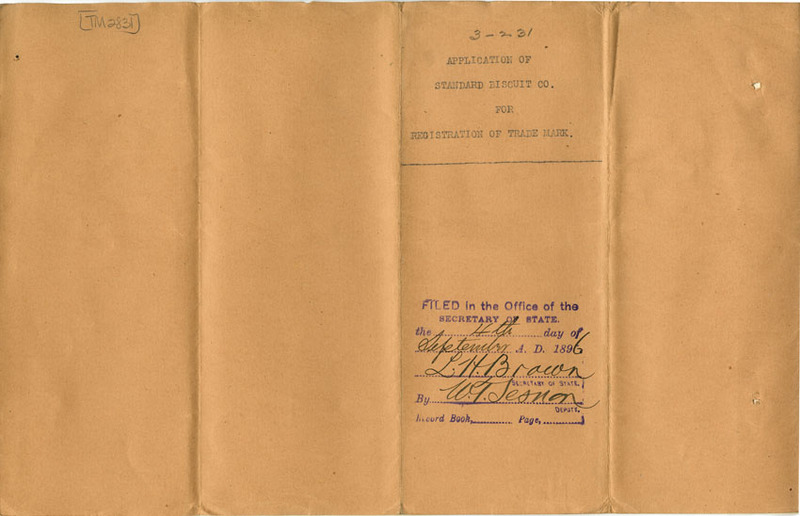 TM2831
3-2 31
APPLICATION OF
STANDARD BISCUIT CO.
FOR
REGISTRATION OF TRADE MARK.
FILED in the Office of the
SECRETARY OF STATE.
the 4th day of
September A. D. 1896
L. H. Brown
SECRETARY OF STATE.
By W. T. Sesnon
DEPUTY.
Record Book, Page,